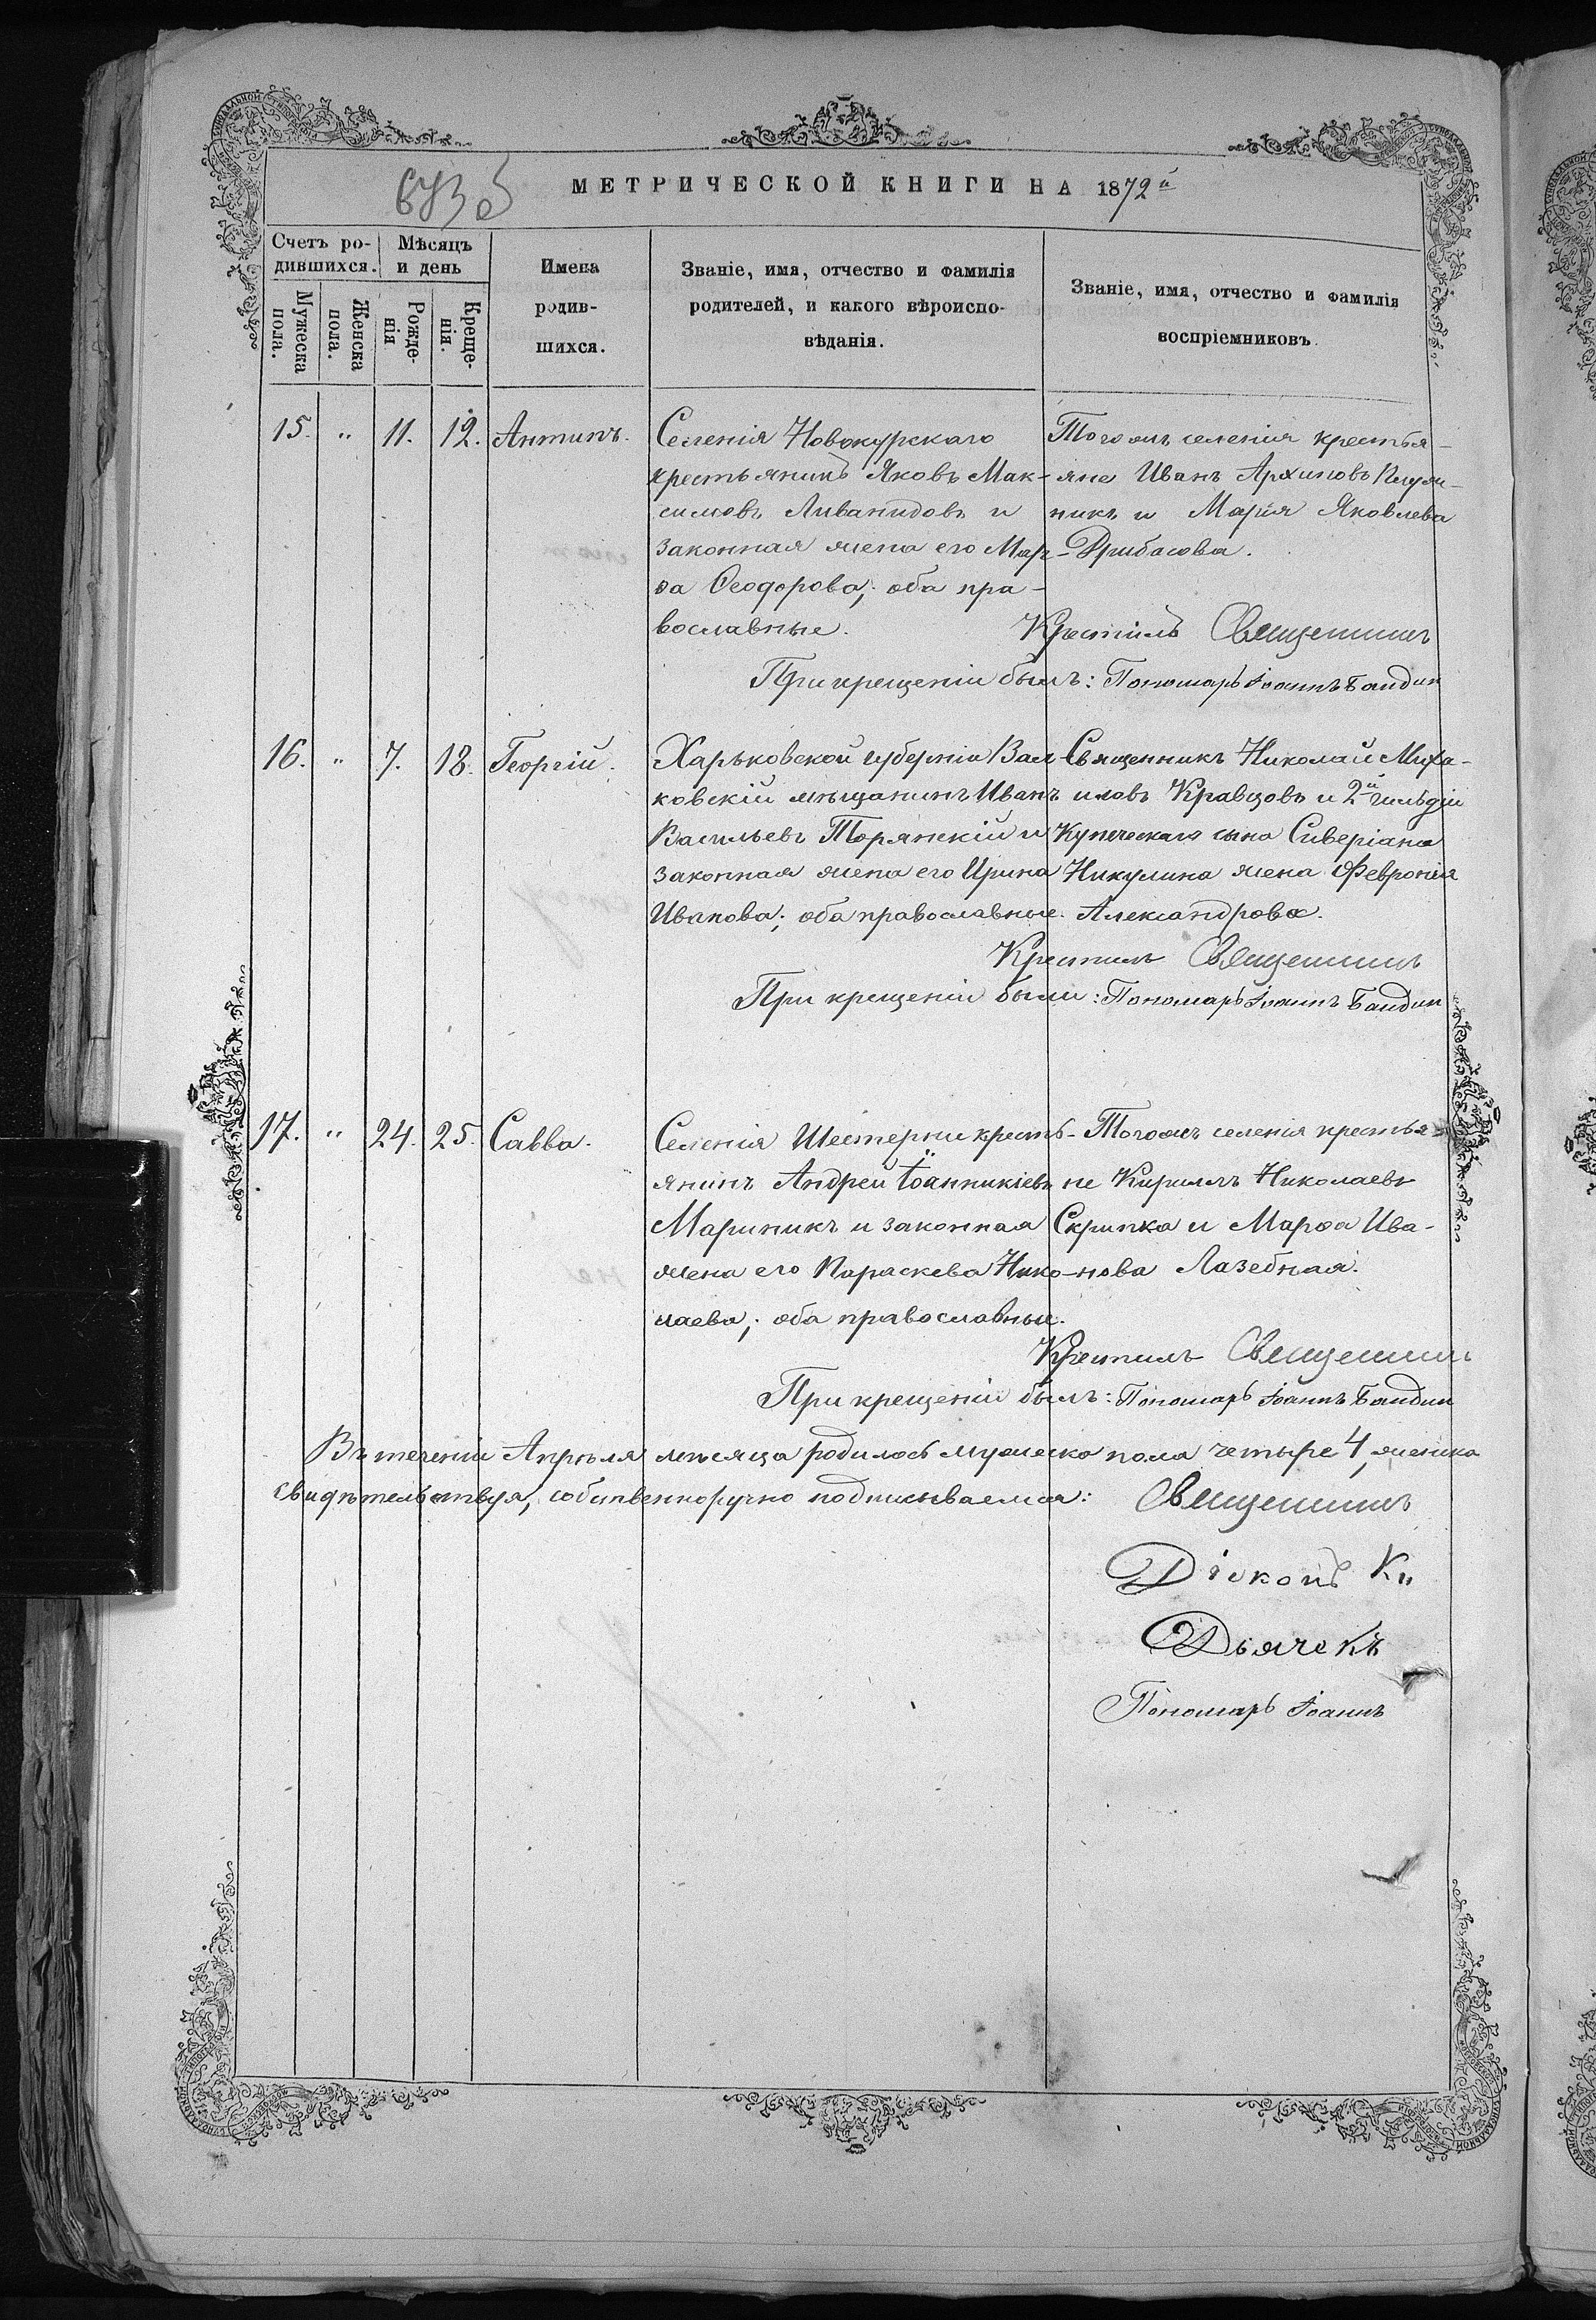 МЕТРИЧЕСКОЙ КНИГИ НА 1872й
Счетъ ро-
дившихся.
Мѣсяцъ
и день
Мужеска
пола.
Женска
пола.
Рожде-
нія
Креще-
нія.
Имена
родив-
шихся.
Званіе, имя, отчество и фамилія
родителей, и какого вѣроиспо-
вѣданія.
Званіе, имя, отчество и фамилія
воспріемниковъ
15. " 11. 12. Антипъ.
Селенія Новокурскаго
крестьянинъ Яковъ Мак-
симовъ Ливанидовъ и
законная жена его Мар-
ѳа Ѳеодорова; оба пра-
вославные.
Тогожъ селенія крестья-
яне Иванъ Архиповъ
никъ и Марія Яковлева
Дрибасова.
Крестилъ Священникъ
При крещеніи былъ: Пономарь Іоаннъ Бандин
16. " 7. 18. Георгій.
Харьковской губерніи Вал-
ковскій мѣщанинъ Иванъ
Васильевъ Торянскій и
законная жена его Ирина
Иванова; оба православные.
Священникъ Николай Миха-
иловъ Кравцовъ и 2й гильдіи
Купеческаго сына Сиверіана
Никулина жена Февронія
Александрова.
Крестилъ Священникъ
При крещеніи были: Пономарь Іоаннъ Бандин
17. " 24. 25. Савва.
Селенія Шестерни кресть-
янинъ Андрей Іоанникіевъ
Мариникъ и законная
жена его Параскева Нико-
лаева; оба православные.
Тогожъ селенія крестья-
не Кириллъ Николаевъ
Скрипка и Марѳа Ива-
нова Лазебная.
Крестилъ Священникъ
При крещеніи былъ: Пономарь Іоаннъ Бандин
Въ теченіи Апрѣля мѣсяца родилось мужеска пола четыре 4, женска
свидѣтельствуя, собственноручно подписываемся: Священникъ
Діаконъ Кн
Дьячекъ
Пономарь Іоаннъ